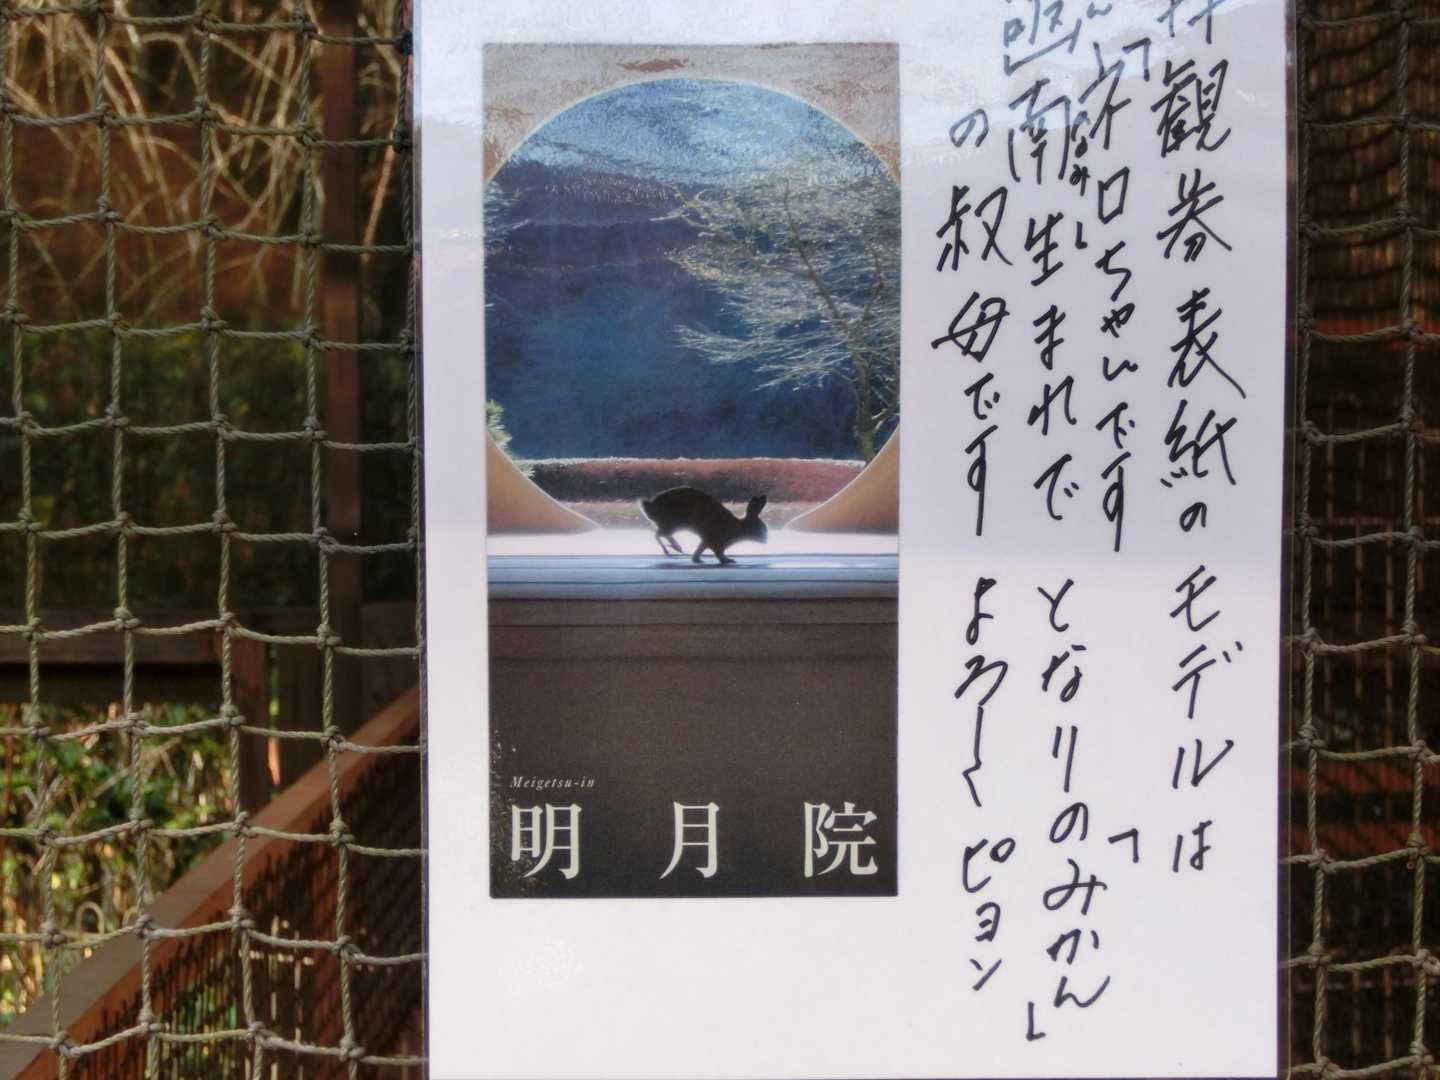 拝観券表紙のモデルは
「ネロちゃんです
南生まれで となりの「みかん」
なみ
の叔母です よろ〜〜ピョン
Meigetsu-in
明月院